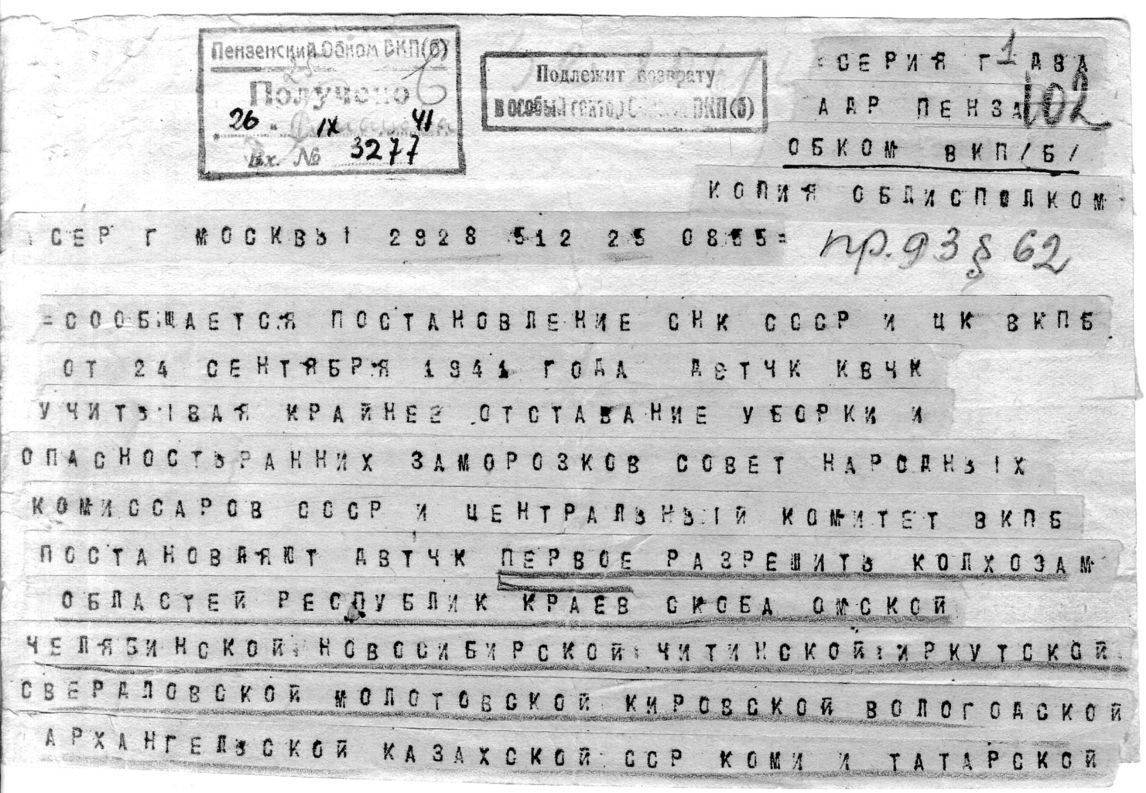 Пензенский Обком ВКП(б)
Получено
26 IX 41
Вх. № 3277
Подлежит возврату
в особый сектор Обкома ВКП(б)
=СЕРИЯ Г 1 АВА
ААР ПЕНЗА 102
ОБКОМ ВКП/Б/
КОПИЯ ОБЛИСПОЛКОМ
=СЕР Г МОСКВЫ 2928 512 25 0855=
пр. 93 § 62
=СООБЩАЕТСЯ ПОСТАНОВЛЕНИЕ СНК СССР И ЦК ВКПБ
ОТ 24 СЕНТЯБРЯ 1941 ГОДА ДВТЧК КВЧК
УЧИТЫВАЯ КРАЙНЕЕ ОТСТАВАНИЕ УБОРКИ И
ОПАСНОСТЬ РАННИХ ЗАМОРОЗКОВ СОВЕТ НАРОДНЫХ
КОМИССАРОВ СССР И ЦЕНТРАЛЬНЫЙ КОМИТЕТ ВКПБ
ПОСТАНОВЛЯЮТ ДВТЧК ПЕРВОЕ РАЗРЕШИТЬ КОЛХОЗАМ
ОБЛАСТЕЙ РЕСПУБЛИК КРАЕВ СКОБА ОМСКОЙ
ЧЕЛЯБИНСКОЙ НОВОСИБИРСКОЙ ЧИТИНСКОЙ ИРКУТСКОЙ
СВЕРДЛОВСКОЙ МОЛОТОВСКОЙ КИРОВСКОЙ ВОЛОГОДСКОЙ
АРХАНГЕЛЬСКОЙ КАЗАХСКОЙ ССР КОМИ И ТАТАРСКОЙ